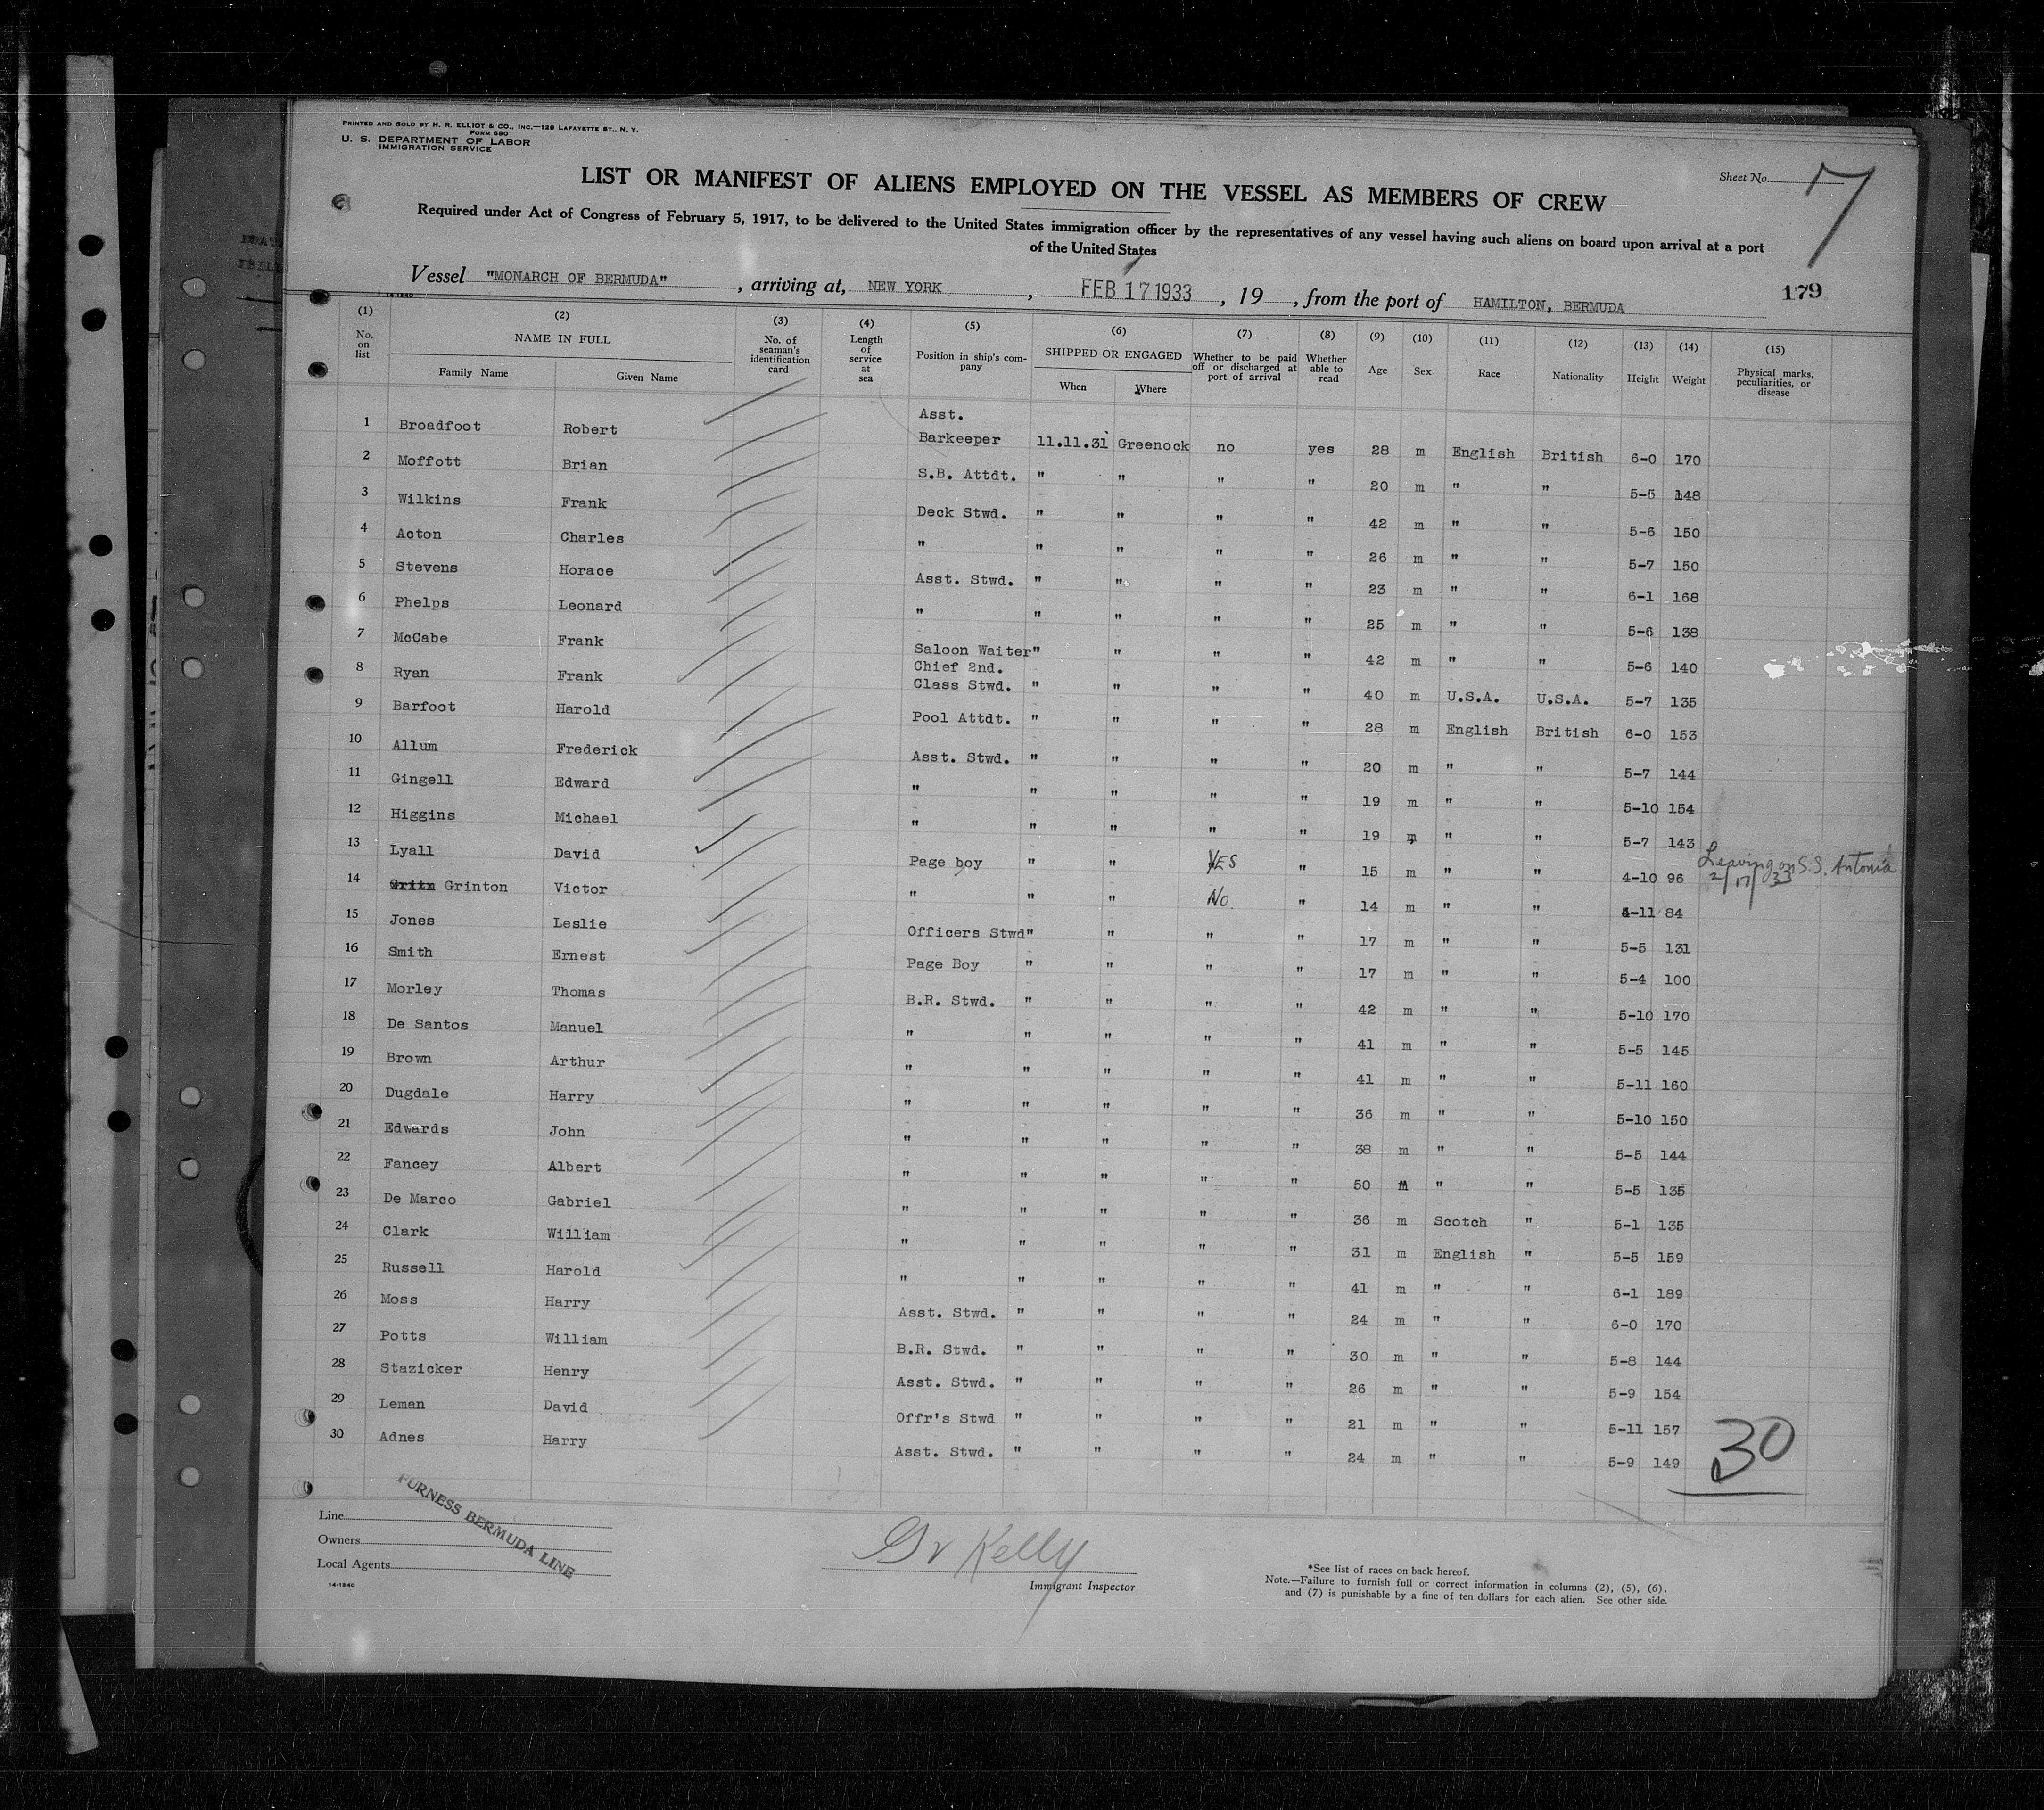 PRINTED AND SOLD BY H. R. ELLIOT & CO., INC.—129 LAFAYETTE ST., N. Y.
FORM 680
U. S. DEPARTMENT OF LABOR
IMMIGRATION SERVICE
Sheet No. 7
LIST OR MANIFEST OF ALIENS EMPLOYED ON THE VESSEL AS MEMBERS OF CREW
Required under Act of Congress of February 5, 1917, to be delivered to the United States immigration officer by the representatives of any vessel having such aliens on board upon arrival at a port
of the United States
Vessel "MONARCH OF BERMUDA", arriving at, NEW YORK, FEB 17 1933, 19 , from the port of HAMILTON, BERMUDA 179
14-1240
(1) No. on list (2) NAME IN FULL Family Name Given Name (3) No. of seaman's identification card (4) Length of service at sea (5) Position in ship's company (6) SHIPPED OR ENGAGED When Where (7) Whether to be paid off or discharged at port of arrival (8) Whether able to read (9) Age (10) Sex (11) Race (12) Nationality (13) Height (14) Weight (15) Physical marks, peculiarities, or disease
1 Broadfoot Robert Asst. Barkeeper 11.11.31 Greenock no yes 28 m English British 6-0 170
2 Moffott Brian S.B. Attdt. " " " " 20 m " " 5-5 148
3 Wilkins Frank Deck Stwd. " " " " 42 m " " 5-6 150
4 Acton Charles " " " " " 26 m " " 5-7 150
5 Stevens Horace Asst. Stwd. " " " " 23 m " " 6-1 168
6 Phelps Leonard " " " " " 25 m " " 5-6 138
7 McCabe Frank Saloon Waiter " " " " 42 m " " 5-6 140
8 Ryan Frank Chief 2nd. Class Stwd. " " " " 40 m U.S.A. U.S.A. 5-7 135
9 Barfoot Harold Pool Attdt. " " " " 28 m English British 6-0 153
10 Allum Frederick Asst. Stwd. " " " " 20 m " " 5-7 144
11 Gingell Edward " " " " " 19 m " " 5-10 154
12 Higgins Michael " " " " " 19 m " " 5-7 143
13 Lyall David Page boy " " YES " 15 m " " 4-10 96 Leaving on S.S. Antonia 2/17/33
14 Grinton Victor " " " No. " 14 m " " 4-11 84
15 Jones Leslie Officers Stwd " " " " 17 m " " 5-5 131
16 Smith Ernest Page Boy " " " " 17 m " " 5-4 100
17 Morley Thomas B.R. Stwd. " " " " 42 m " " 5-10 170
18 De Santos Manuel " " " " " 41 m " " 5-5 145
19 Brown Arthur " " " " " 41 m " " 5-11 160
20 Dugdale Harry " " " " " 36 m " " 5-10 150
21 Edwards John " " " " " 38 m " " 5-5 144
22 Fancey Albert " " " " " 50 m " " 5-5 135
23 De Marco Gabriel " " " " " 36 m Scotch " 5-1 135
24 Clark William " " " " " 31 m English " 5-5 159
25 Russell Harold " " " " " 41 m " " 6-1 189
26 Moss Harry Asst. Stwd. " " " " 24 m " " 6-0 170
27 Potts William B.R. Stwd. " " " " 30 m " " 5-8 144
28 Stazicker Henry Asst. Stwd. " " " " 26 m " " 5-9 154
29 Leman David Offr's Stwd " " " " 21 m " " 5-11 157
30 Adnes Harry Asst. Stwd. " " " " 24 m " " 5-9 149
30
Line
Owners
Local Agents
FURNESS BERMUDA LINE
14-1240
Kelly
Immigrant Inspector
*See list of races on back hereof.
Note.—Failure to furnish full or correct information in columns (2), (5), (6),
and (7) is punishable by a fine of ten dollars for each alien. See other side.